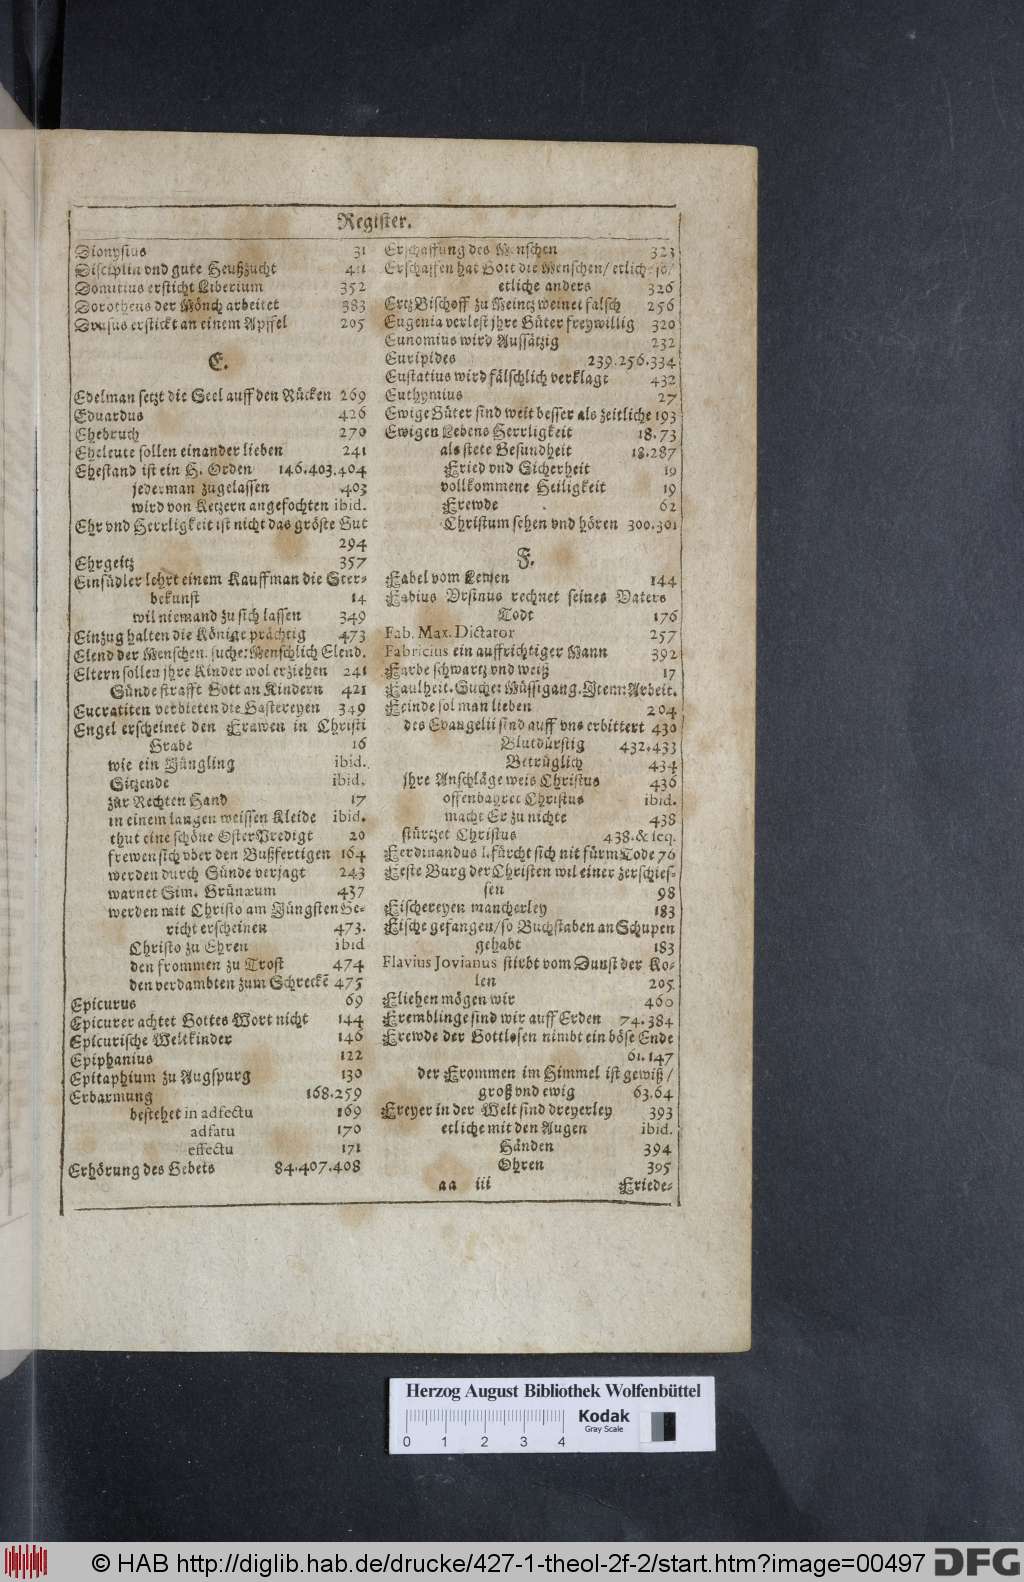 Register.
Dionysius 31
Disciplin vnd gute Heußzucht
Domitius ersticht Liberium 352
Dorotheus der Mönch arbeitet 383
Drusus erstickt an einem Apffel 205
E.
Edelman setzt die Seel auff den Rücken 269
Eduardus 426
Ehebruch 270
Eheleute sollen einander lieben 241
Ehestand ist ein H. Orden 146.403.404
jederman zugelassen 403
wird von Ketzern angefochten ibid.
Ehr vnd Herrligkeit ist nicht das gröste Gut
294
Ehrgeitz 357
Einsüdler lehrt einem Kauffman die Ster-
bekunst 14
wil niemand zu sich lassen 349
Einzug halten die Könige prächtig 473
Elend der Menschen. suche: Menschlich Elend.
Eltern sollen jhre Kinder wol erziehen 241
Sünde strafft Gott an Kindern 421
Eucratiten verbieten die Gastereyen 349
Engel erscheinet den Frawen in Christi
Grabe 16
wie ein Jüngling ibid.
Sitzende ibid.
zur Rechten Hand 17
in einem langen weissen Kleide ibid.
thut eine schöne OsterPredigt 20
frewen sich vber den Bußfertigen 164
werden durch Sünde verjagt 243
warnet Sim. Grünæum 437
werden mit Christo am Jüngsten Ge-
richt erscheinen 473.
Christo zu Ehren ibid
den frommen zu Trost 474
den verdambten zum Schreckē 475
Epicurus 69
Epicurer achtet Gottes Wort nicht 144
Epicurische Weltkinder 146
Epiphanius 122
Epitaphium zu Augspurg 130
Erbarmung 168.259
bestehet in adfectu 169
adfatu 170
effectu 171
Erhörung des Gebets 84.407.408
Erschaffung des Menschen 323
Erschaffen hat Gott die Menschen/ etliche so/
etliche anders 326
ErtzBischoff zu Meintz weinet falsch 256
Eugenia verlest jhre Güter freywillig 320
Eunomius wird Aussätzig 232
Euripides 239.256.334
Eustatius wird fälschlich verklagt 432
Euthymius 27
Ewige Güter sind weit besser als zeitliche 193
Ewigen Lebens Herrligkeit 18.73
als stete Gesundheit 18.287
Fried vnd Sicherheit 19
vollkommene Heiligkeit 19
Frewde 62
Christum sehen vnd hören 300.301
F.
Fabel vom Lewen 144
Fabius Vrsinus rechnet seines Vaters
Todt 176
Fab. Max. Dictator 257
Fabricius ein auffrichtiger Mann 392
Farbe schwartz vnd weiß 17
Faulheit. Suche: Müssigang. Item: Arbeit.
Feinde sol man lieben 204
des Evangelii sind auff vns erbittert 430
Blutdürstig 432.433
Betrüglich 434
jhre Anschläge weis Christus 436
offenbahret Christus ibid.
macht Er zu nichte 438
stürtzet Christus 438.& seq.
Ferdinandus I. fürcht sich nit fürm Tode 76
Feste Burg der Christen wil einer zerschies-
sen 98
Fischereyen mancherley 183
Fische gefangen/ so Buchstaben an Schupen
gehabt 183
Flavius Jovianus stirbt vom Dunst der Ko-
len 205.
Fliehen mögen wir 460
Fremblinge sind wir auff Erden 74.384
Frewde der Gottlosen nimbt ein böse Ende
61.147
der Frommen im Himmel ist gewiß/
groß vnd ewig 63.64
Freyer in der Welt sind dreyerley 393
etliche mit den Augen ibid.
Händen 394
Ohren 395
aa iii Friede-
Herzog August Bibliothek Wolfenbüttel
Kodak
Gray Scale
0 1 2 3 4
© HAB http://diglib.hab.de/drucke/427-1-theol-2f-2/start.htm?image=00497 DFG